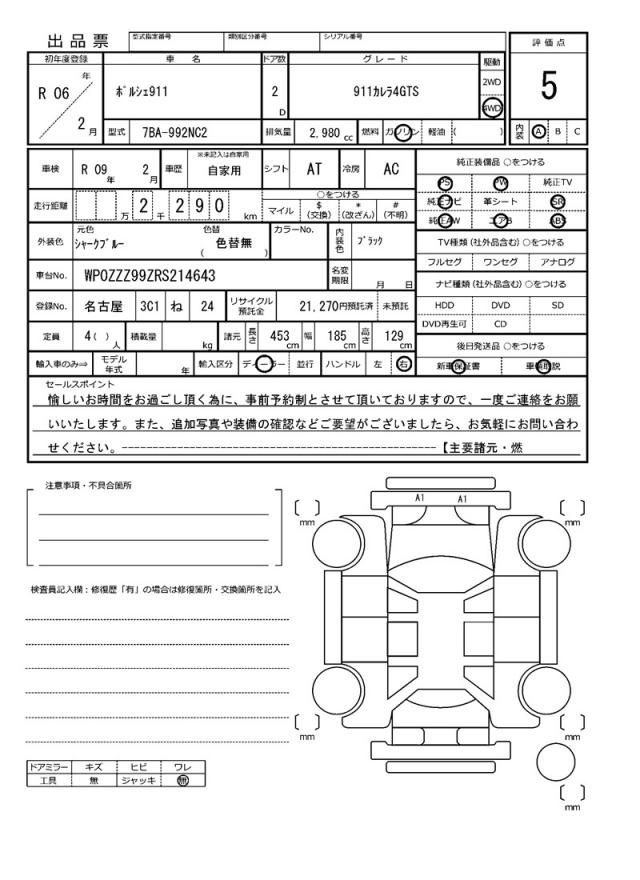 出品票 型式指定番号 類別区分番号 シリアル番号 評価点
初年度登録 車名 ドア数 グレード 駆動
R 06 年 2 月 ﾎﾟﾙｼｪ911 2 D 911ｶﾚﾗ4GTS 2WD 4WD 5
型式 7BA-992NC2 排気量 2,980 cc 燃料 ガソリン 軽油 ( ) 内装 A B C
車検 R 09 年 2 月 車歴 ※未記入は自家用 自家用 シフト AT 冷房 AC 純正装備品 ○をつける
PS PW 純正TV
走行距離 万 2 千 2 9 0 km ○をつける
マイル $ (交換) * (改ざん) # (不明)
純正ナビ 革シート SR
純正AW エアB ABS
外装色 元色 ｼｬｰｸﾌﾞﾙｰ 色替 色替無 ( ) カラーNo. 内装色 ﾌﾞﾗｯｸ
TV種類 (社外品含む) ○をつける
フルセグ ワンセグ アナログ
車台No. WP0ZZZ99ZRS214643 名変期限 月 日
ナビ種類 (社外品含む) ○をつける
登録No. 名古屋 3C1 ね 24 リサイクル預託金 21,270円預託済 未預託
HDD DVD SD
DVD再生可 CD
定員 4( )人 積載量 kg 諸元 長さ 453 cm 幅 185 cm 高さ 129 cm
後日発送品 ○をつける
輸入車のみ⇒ モデル年式 年 輸入区分 ディーラー 並行 ハンドル 左 右 新車保証書 車輌取説
セールスポイント
愉しいお時間をお過ごし頂く為に、事前予約制とさせて頂いておりますので、一度ご連絡をお願
いいたします。また、追加写真や装備の確認などご要望がございましたら、お気軽にお問い合わ
せください。------------------------------------------------【主要諸元・燃
注意事項・不具合箇所
A1 A1
[ ] mm [ ] mm
検査員記入欄：修復歴「有」の場合は修復箇所・交換箇所を記入
[ ] mm [ ] mm
ドアミラー キズ ヒビ ワレ
工具 無 ジャッキ 無
[ ] mm